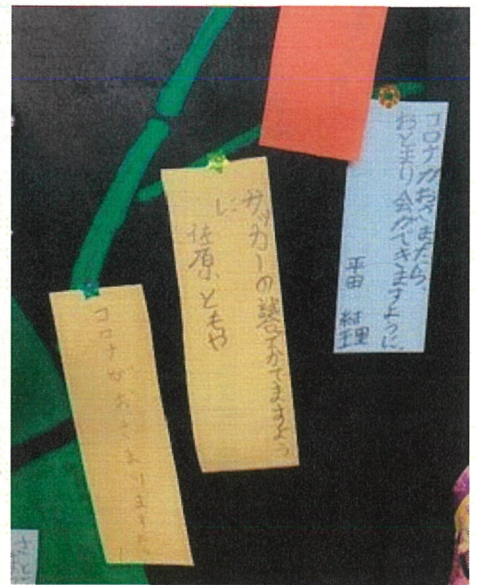 コロナがおさまたら、
おとまり会ができますように。
平田
サッカーの試合でかてますよう
に
佐原ともや
コロナがおさまりますよ